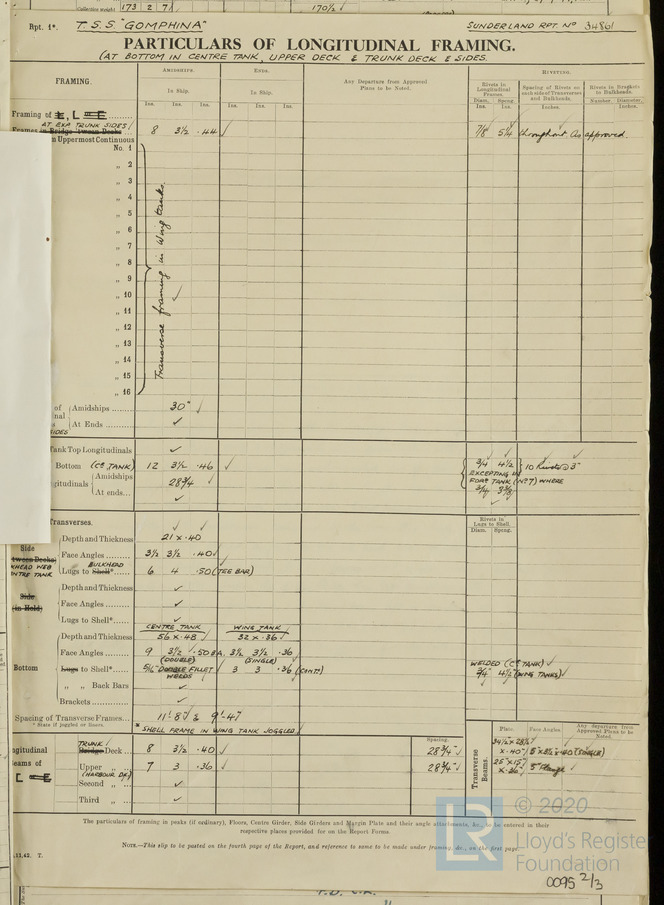 Collective weight 173 2 7 170½
Rpt. 1*. T.S.S. "GOMPHINA" SUNDERLAND RPT. No 34861
PARTICULARS OF LONGITUDINAL FRAMING.
(AT BOTTOM IN CENTRE TANK, UPPER DECK & TRUNK DECK & SIDES.
FRAMING.
AMIDSHIPS.
ENDS.
Any Departure from Approved Plans to be Noted.
RIVETING.
In Ship.
In Ship.
Rivets in Longitudinal Frames.
Spacing of Rivets on each side of Transverses and Bulkheads.
Rivets in Brackets to Bulkheads.
Ins. Ins. Ins. Ins. Ins. Ins.
Diam. Ins. Spcng. Ins. Inches. Number. Diameter. Inches.
Framing of L
AT EXP TRUNK SIDES
Frames in Bridge 'tween Decks 8 3½ .44 √ 7/8 5¼ throughout As approved.
m Uppermost Continuous
No. 1
„ 2
„ 3
„ 4
„ 5
„ 6
„ 7
„ 8
„ 9
„ 10
„ 11
„ 12
„ 13
„ 14
„ 15
„ 16
Transverse framing in Wing tanks.
of Amidships 30" √
nal
At Ends √
SIDES
Tank Top Longitudinals √
Bottom (Ce TANK) 12 3½ .46 √ ¾ 4½ 10 Rivets @ 3"
EXCEPTING IN
FORd TANK (No 7) WHERE
gitudinals Amidships 28¾ √
At ends √
Transverses.
Rivets in Lugs to Shell. Diam. Spcng.
Depth and Thickness 21 x .40
Side
'tween Decks
KHEAD WEB
NTRE TANK
Face Angles 3½ 3½ .40 √
BULKHEAD
Lugs to Shell* 6 4 .50 (TEE BAR)
Side
(in Hold)
Depth and Thickness √
Face Angles √
Lugs to Shell* √
CENTRE TANK WING TANK
Depth and Thickness 56 x .48 √ 32 x .36 √
Face Angles 9 3½ .50 B.A. 3½ 3½ .36
(DOUBLE) (SINGLE)
Bottom
Lugs to Shell* DOUBLE FILLET WELDS 3 3 .36 (Conts)
WELDED (Ce TANK)
¾" 4½" (WING TANKS) √
„ „ Back Bars √
Brackets √
Spacing of Transverse Frames 11'-8" √ & 9'-4"
* State if joggled or liners.
* SHELL FRAME IN WING TANK JOGGLED
Spacing.
Plate. Face Angles. Any Departure from Approved Plans to be Noted.
ngitudinal
Beams of
TRUNK
Bridge Deck 8 3½ .40 √ 28¾" √
Upper „ 7 3 .36 √ 28¾" √
(HARBOUR DK)
Second „ √
Third „ √
Transverse Beams.
34½ x 28½
x .40" (SINGLE)
25" x 15"
x .36" 5" flange
The particulars of framing in peaks (if ordinary), Floors, Centre Girder, Side Girders and Margin Plate and their angle attachments, &c., to be entered in their
respective places provided for on the Report Forms.
NOTE.—This slip to be pasted on the fourth page of the Report, and reference to same to be made under framing, &c., on the first page.
.11.42. T.
© 2020
LR
Lloyd's Register
Foundation
0095 2/3